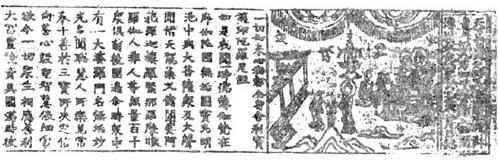 一切如來心秘密全身舍利寶
篋印陀羅尼經
如是我聞一時佛薄伽梵在
摩伽陀國無垢園寶光明
池中與大菩薩衆及大聲
聞僧天龍藥叉健闥婆阿
蘇羅迦樓羅緊那羅摩睺
羅伽人非人等無量百千
衆俱前後圍遶爾時衆中
有一大婆羅門名無垢妙
光多聞聰慧人所樂見常
奉十善於三寶所決定信
向善心殷重智慧微細常
欲令一切衆生相應善利
大富豐饒資具圓滿時彼